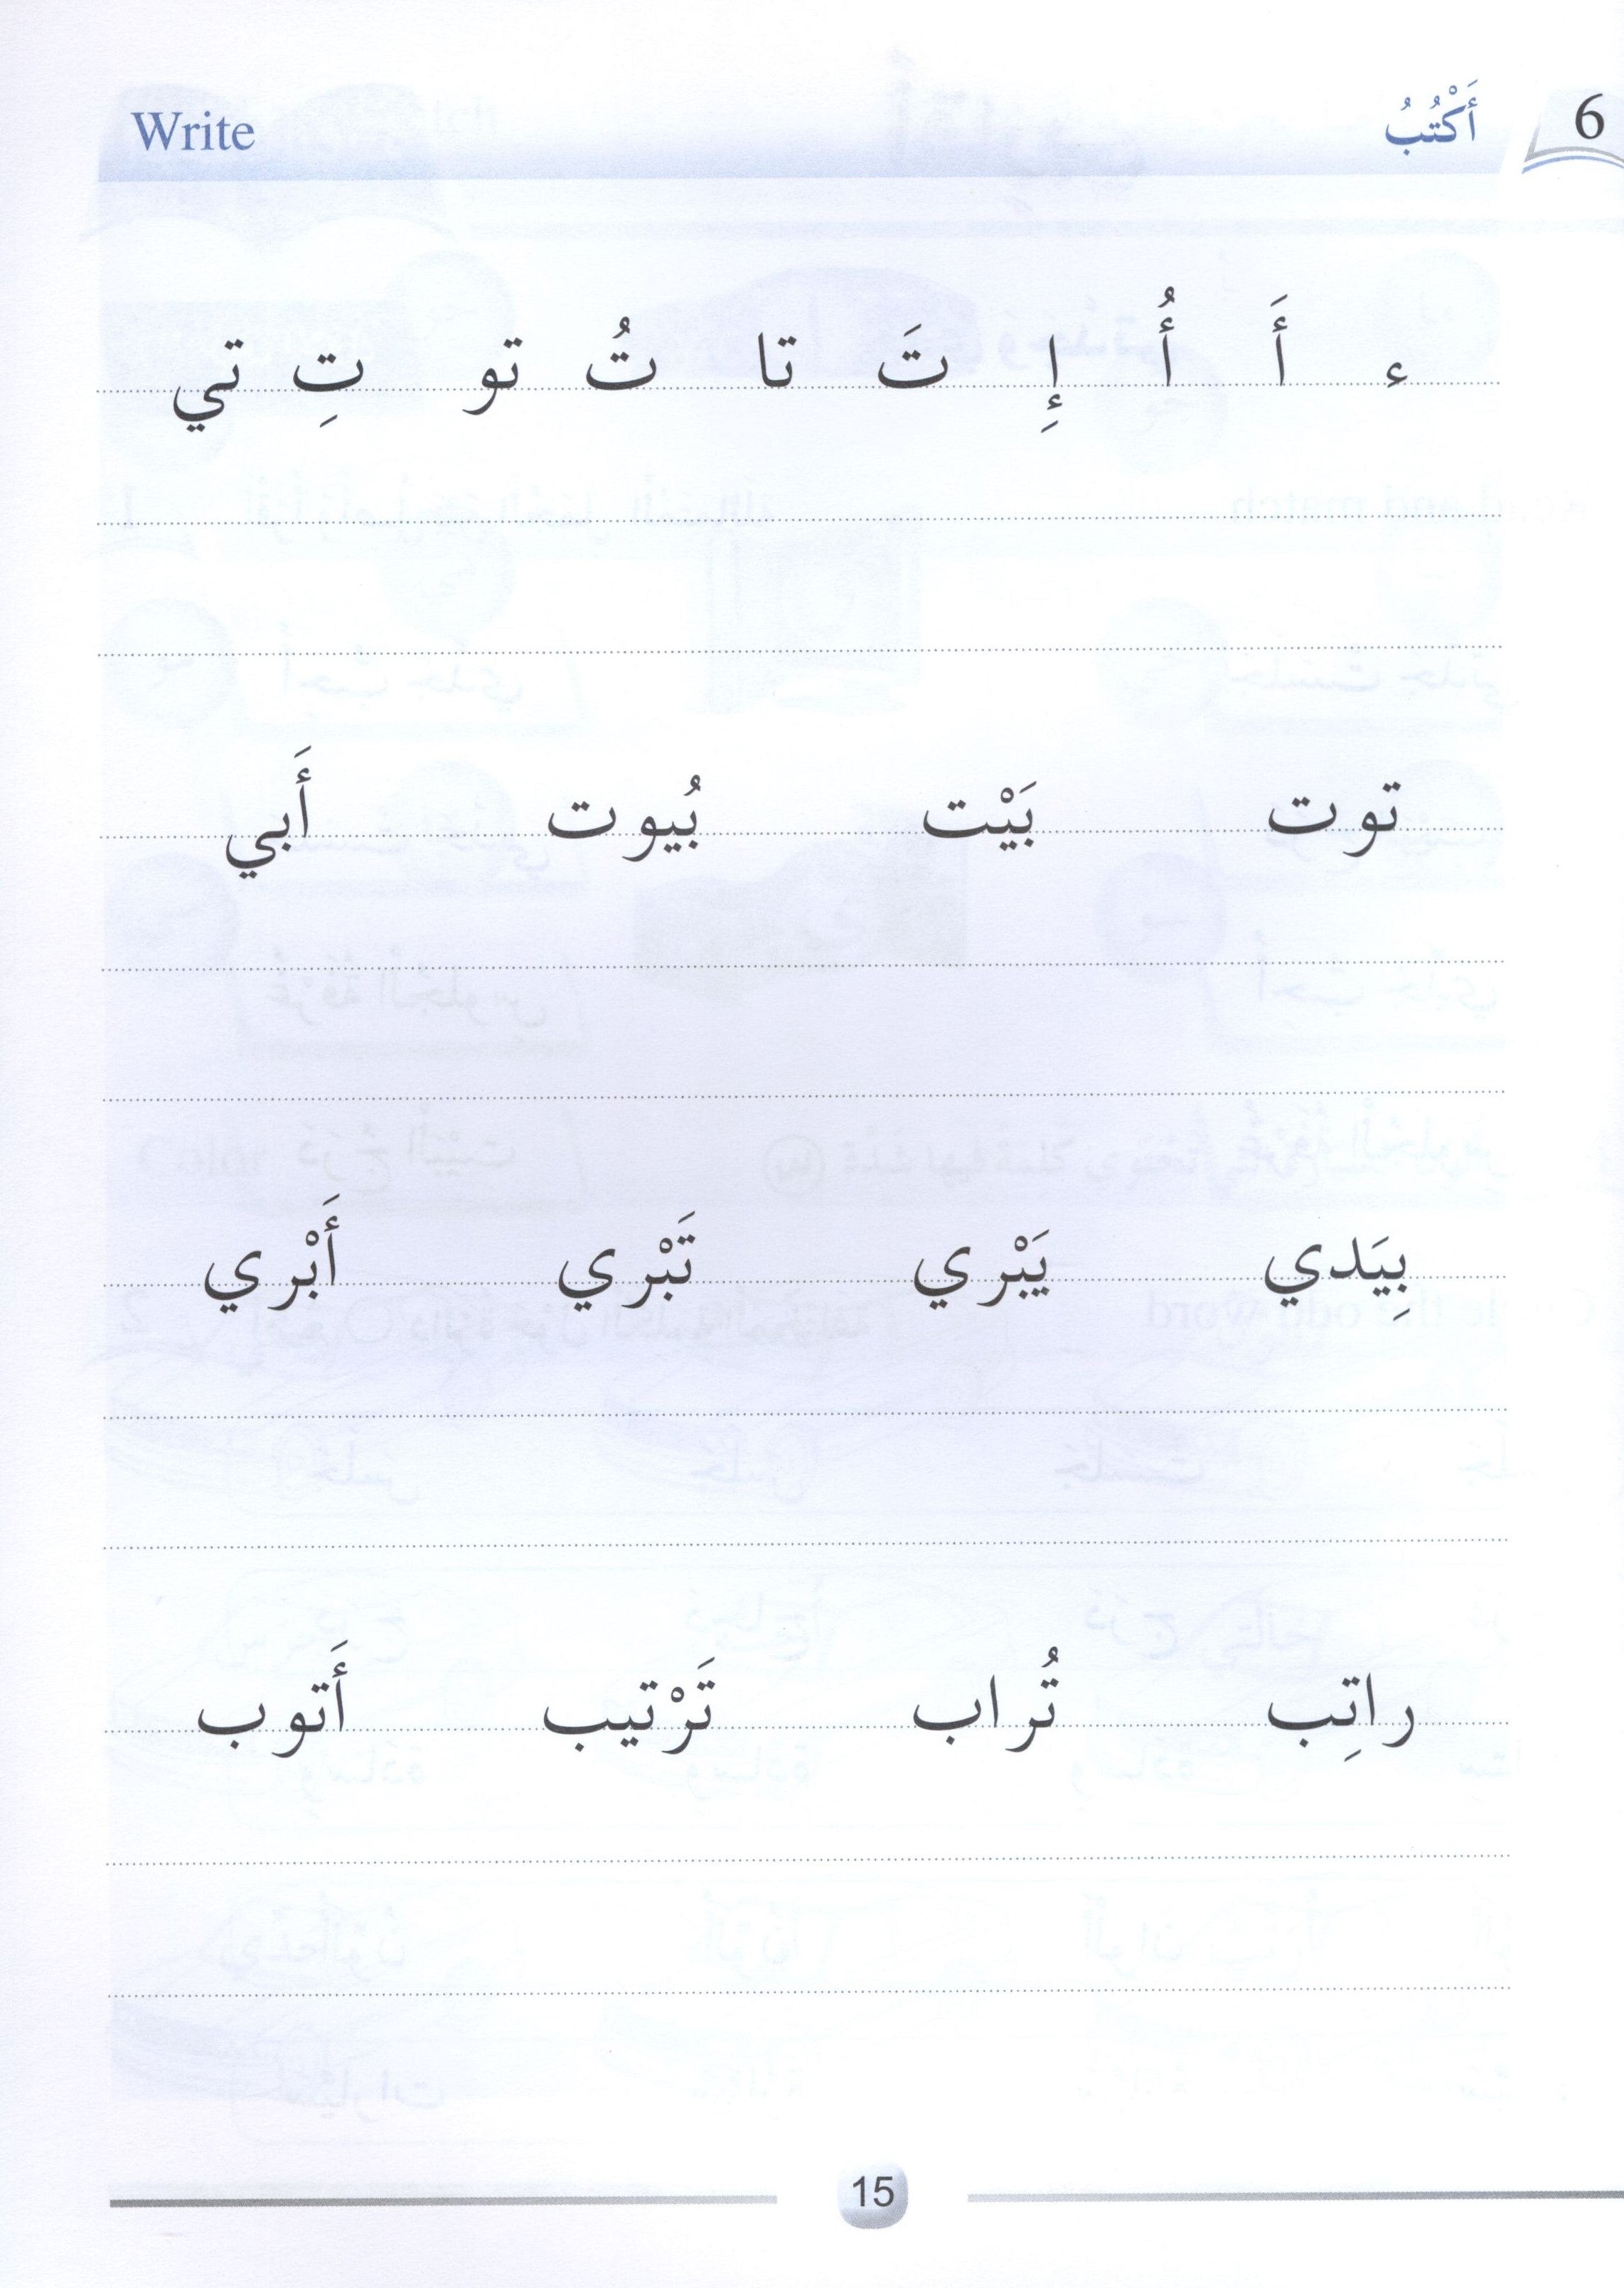 6 أَكْتُبُ Write
ء أَ أُ إِ تَ تا تُ تو تِ تي
توت بَيْت بُيوت أَبي
بِيَدي يَبْري تَبْري أَبْري
راتِب تُراب تَرْتيب أَتوب
15